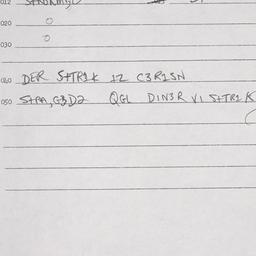 012
020 O
030 O
040 DER S+TR1K 12 C3R1SN
050 S+RA,G3D2 QGL DIN3R V1 S+TR1K